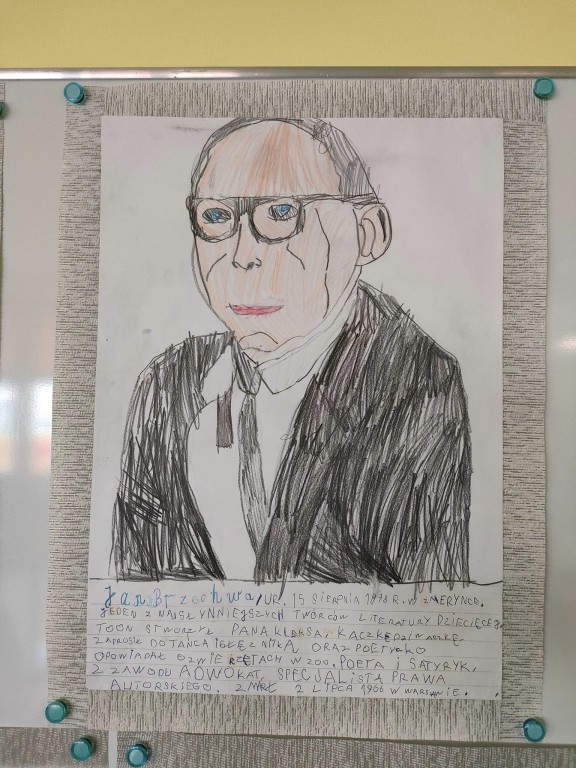 Jan Brzechwa, UR. 15 SIERPNIA 1898 R. W ŻMERYNCE.
JEDEN Z NAJSŁYNNIEJSZYCH TWÓRCÓW LITERATURY DZIECIĘCEJ,
TOON STWORZYŁ PANA KLEKSA, KACZKĘ DZIWACZKĘ
ZAPROSIŁ DO TAŃCA POŁĘŻNIKA ORAZ POETYCKO
OPOWIADAŁ O ZWIERZĘTACH W ZOO. POETA i SATYRYK,
Z ZAWODU ADWOKAT, SPECJALiSTA PRAWA
AUTORSKIEGO. ZMARŁ 2 LIPCA 1966 W WARSZAWIE.